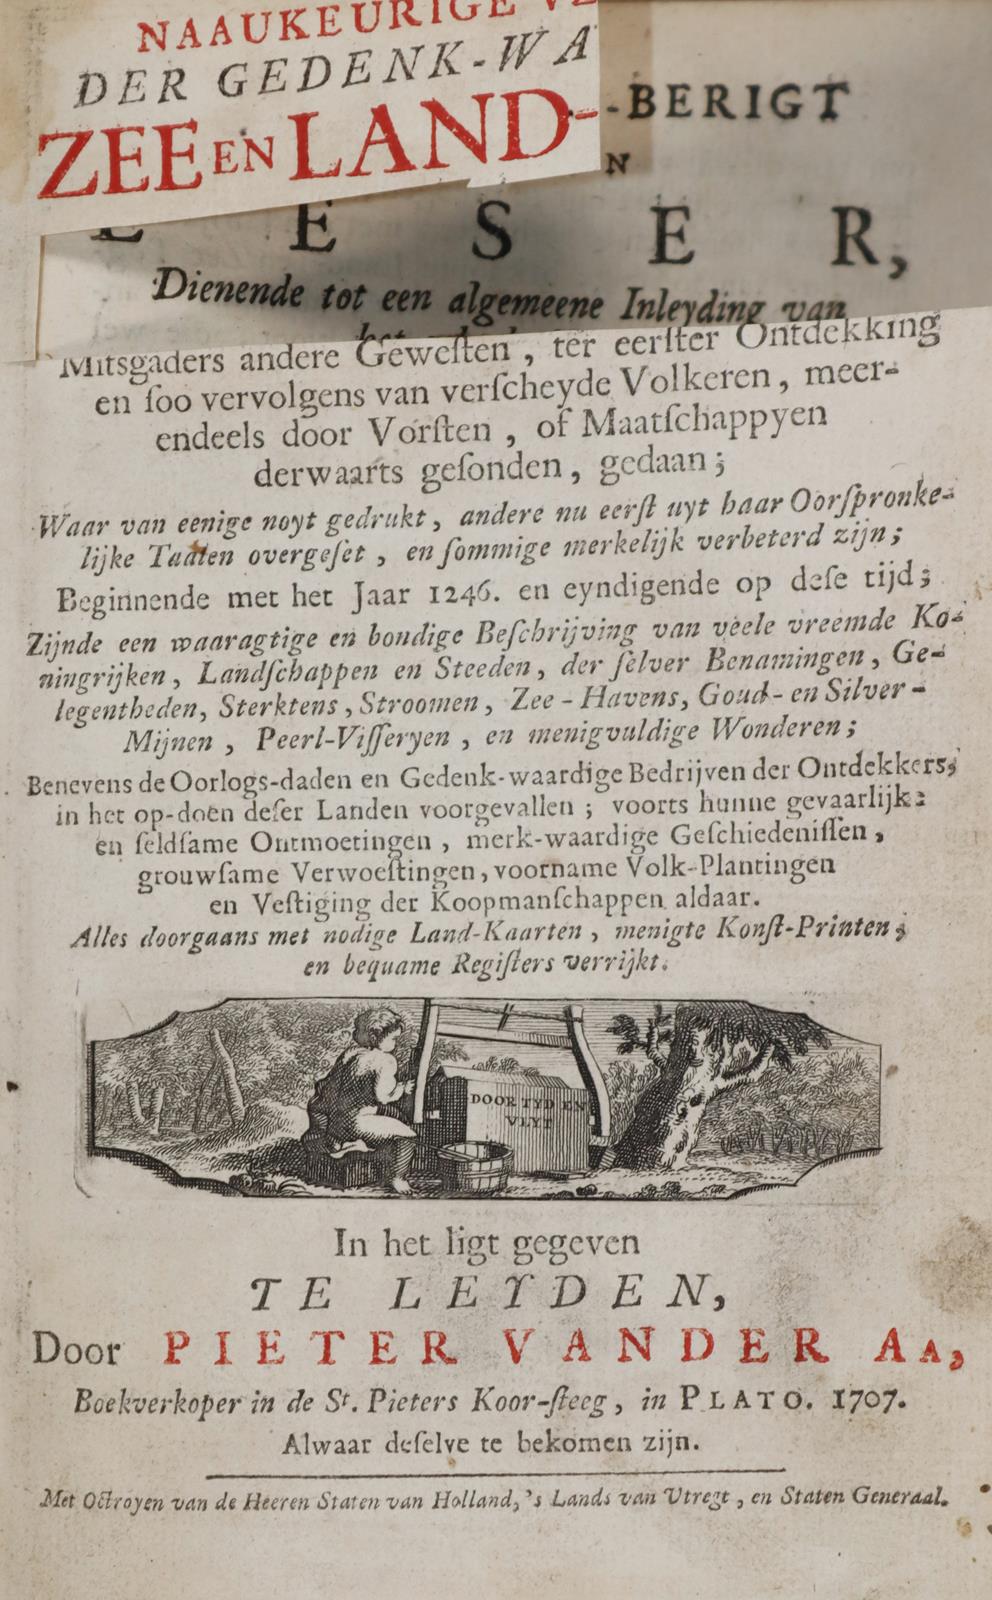 NAAUKEURIGE
DER GEDENK-WA
ZEE EN LAND-
-BERIGT
N
E S E R,
Dienende tot een algemeene Inleyding van
Mitsgaders andere Geweſten, ter eerſter Ontdekking
en ſoo vervolgens van verſcheyde Volkeren, meer-
endeels door Vorſten, of Maatſchappyen
derwaarts geſonden, gedaan;
Waar van eenige noyt gedrukt, andere nu eerſt uyt haar Oorſpronke-
lijke Taalen overgeſet, en ſommige merkelijk verbeterd zijn;
Beginnende met het Jaar 1246. en eyndigende op deſe tijd;
Zijnde een waaragtige en bondige Beſchrijving van veele vreemde Ko-
ningrijken, Landſchappen en Steeden, der ſelver Benamingen, Ge-
legentheden, Sterktens, Stroomen, Zee-Havens, Goud- en Silver-
Mijnen, Peerl-Viſſeryen, en menigvuldige Wonderen;
Benevens de Oorlogs-daden en Gedenk-waardige Bedrijven der Ontdekkers,
in het op-doen deſer Landen voorgevallen; voorts hunne gevaarlijke
en ſeldſame Ontmoetingen, merk-waardige Geſchiedeniſſen,
grouwſame Verwoeſtingen, voorname Volk-Plantingen
en Veſtiging der Koopmanſchappen aldaar.
Alles doorgaans met nodige Land-Kaarten, menigte Konſt-Printen,
en bequame Regiſters verrijkt.
DOOR TYD EN
VLYT
In het ligt gegeven
TE LEYDEN,
Door PIETER VANDER AA,
Boekverkoper in de St. Pieters Koor-ſteeg, in PLATO. 1707.
Alwaar deſelve te bekomen zijn.
Met Octroyen van de Heeren Staten van Holland, 's Lands van Utregt, en Staten Generaal.